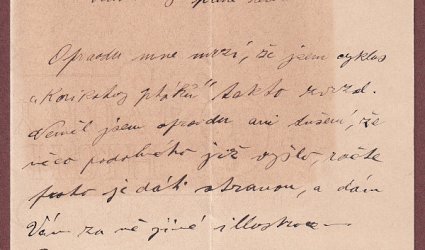 Opravdu mne mrzí, že jsem cyklus
takto
Neměl jsem opravdu ani tušení, že
něco podobného již vyšlo, račte
proto je dáti stranou, a dám
Vám za ně jiné illustrace